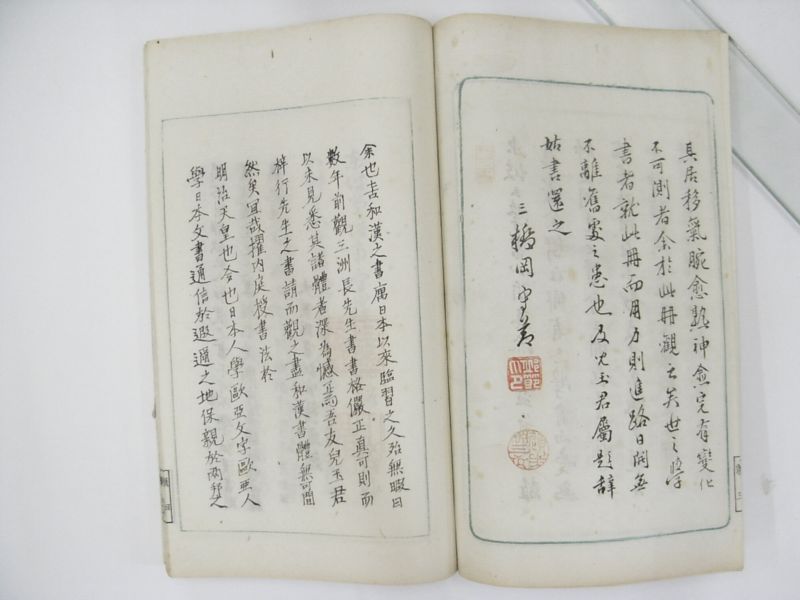 其居移氣腕愈熟神愈完有變化
不可測者余於此冊觀之矣世之學
書者就此冊而用力則進路日闢無
不離舊處之患也及兒玉君屬題辞
姑書還之
三橋岡守節
余也
和漢之書寓日本以來臨習之久殆無暇日
數年前觀三洲長先生書書格儼正真可則而
以未見悉其諸體者深為憾焉吾友兒玉君
梓行先生之書請而觀之盡和漢書體無可間
然矣宜哉擢內庭授書法於
明治天皇也今也日本人學歐亞文字歐亞人
學日本文書通信於遐邇之地保親於兩邦之人